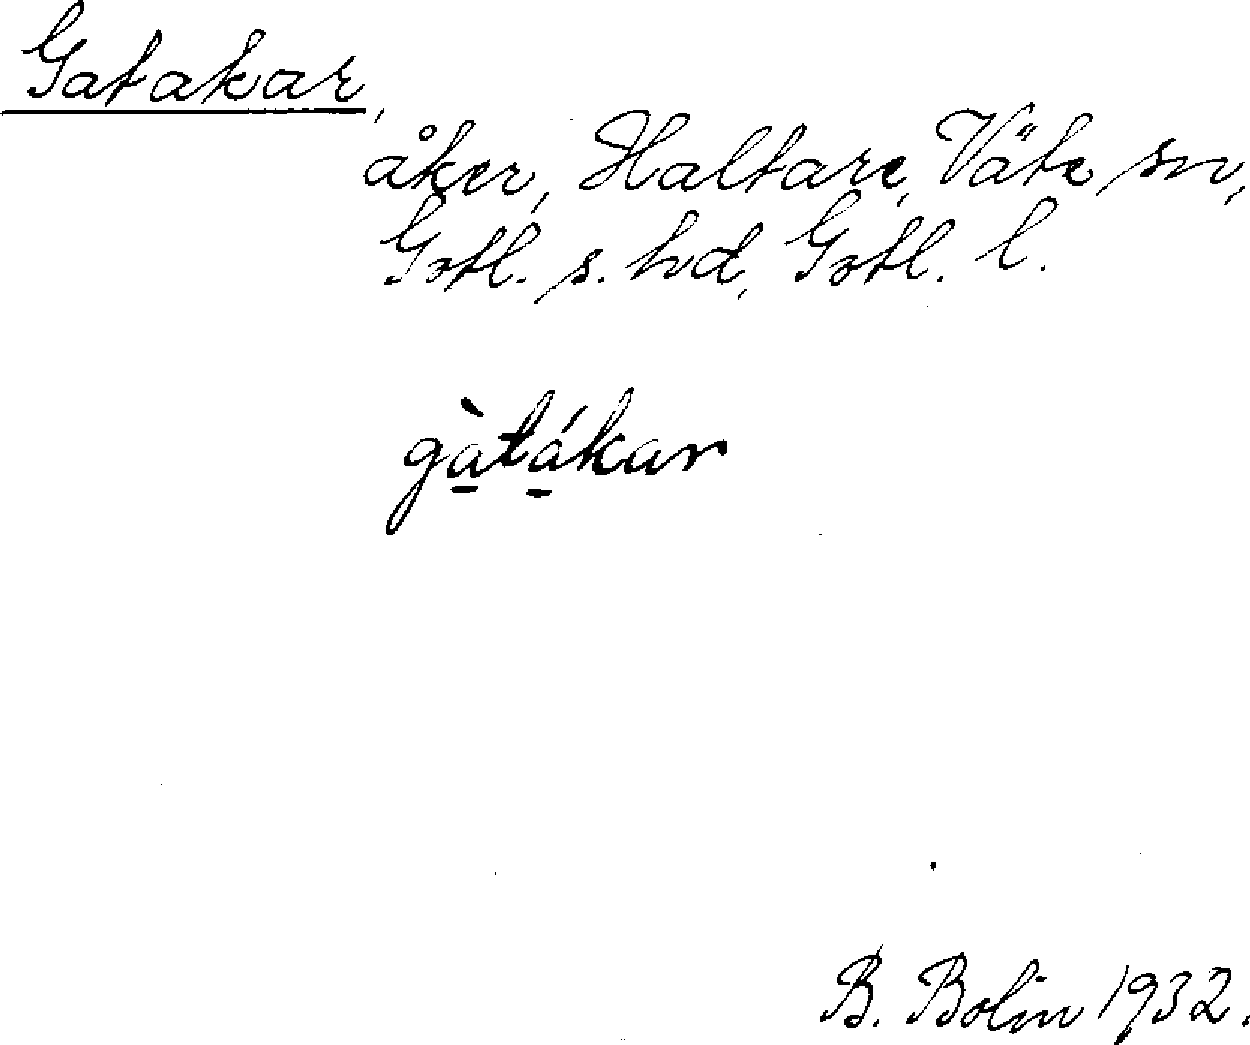 Gatakar,
åker, Haltare, Väte sn,
Gotl. s. hd, Gotl. l.
gà̱tá̱kar
B. Bolin 1932.